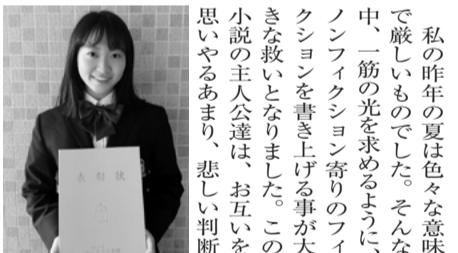 私の昨年の夏は色々な意味
で厳しいものでした。そんな
中、一筋の光を求めるように、
ノンフィクション寄りのフィ
クションを書き上げる事が大
きな救いとなりました。この
小説の主人公達は、お互いを
思いやるあまり、悲しい判断
表彰状